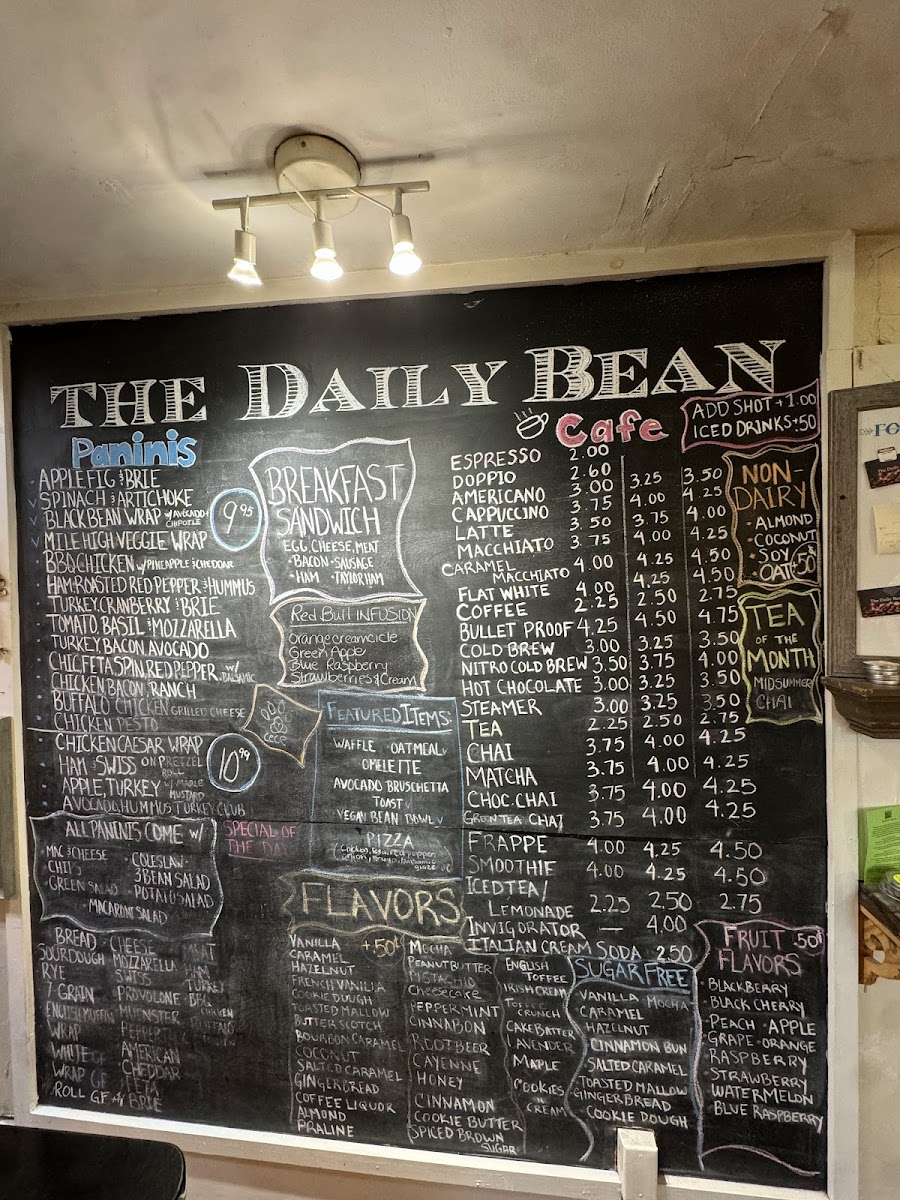 THE DAILY BEAN
Paninis
APPLE FIG & BRIE
SPINACH & ARTICHOKE
BLACK BEAN WRAP W/AVOCADO+ CHIPOTLE
MILE HIGH VEGGIE WRAP
9.95
BBQ CHICKEN W/PINEAPPLE & CHEDDAR
HAM, ROASTED RED PEPPER & HUMMUS
TURKEY, CRANBERRY & BRIE
TOMATO BASIL & MOZZARELLA
TURKEY, BACON, AVOCADO
CHIC, FETA, SPIN, RED PEPPER W/ BALSAMIC
CHICKEN, BACON, RANCH
BUFFALO CHICKEN GRILLED CHEESE
CHICKEN PESTO
CHICKEN CAESAR WRAP
HAM & SWISS ON PRETZEL ROLL
APPLE, TURKEY W/ MAPLE MUSTARD
AVOCADO, HUMMUS TURKEY CLUB
10.99
ALL PANINIS COME W/
MAC & CHEESE
CHIPS
GREEN SALAD
COLESLAW
3 BEAN SALAD
POTATO SALAD
MACARONI SALAD
SPECIAL OF
THE DAY
BREAD
SOURDOUGH
RYE
7 GRAIN
ENGLISH MUFFIN
WRAP
WHITE GF
WRAP GF
ROLL GF
CHEESE
MOZZARELLA
SWISS
PROVOLONE
MUENSTER
PEPPER
AMERICAN
CHEDDAR
FETA
BRIE
MEAT
HAM
TURKEY
BBQ
CHICKEN
BUFFALO
BREAKFAST
SANDWICH
EGG, CHEESE, MEAT
• BACON • SAUSAGE
• HAM • TAYLOR HAM
Red Bull INFUSION
Orange creamcicle
Green Apple
Blue Raspberry
Strawberries & Cream
FEATURED ITEMS
WAFFLE OATMEAL V
OMELETTE
AVOCADO BRUSCHETTA
TOAST V
VEGAN BEAN BOWL V
PIZZA
Cafe
ADD SHOT +1.00
ICED DRINKS +.50
ESPRESSO 2.00
DOPPIO 2.60
AMERICANO 3.00 3.25 3.50
CAPPUCCINO 3.75 4.00 4.25
LATTE 3.50 3.75 4.00
MACCHIATO 3.75 4.00 4.25
CARAMEL MACCHIATO 4.00 4.25 4.50
FLAT WHITE 4.00 4.25 4.50
COFFEE 2.25 2.50 2.75
BULLET PROOF 4.25 4.50 4.75
COLD BREW 3.00 3.25 3.50
NITRO COLD BREW 3.50 3.75 4.00
HOT CHOCOLATE 3.00 3.25 3.50
STEAMER 3.00 3.25 3.50
TEA 2.25 2.50 2.75
CHAI 3.75 4.00 4.25
MATCHA 3.75 4.00 4.25
CHOC. CHAI 3.75 4.00 4.25
GREEN TEA CHAI 3.75 4.00 4.25
FRAPPE 4.00 4.25 4.50
SMOOTHIE 4.00 4.25 4.50
ICED TEA/
LEMONADE 2.25 2.50 2.75
INVIGORATOR — 4.00
ITALIAN CREAM SODA 2.50
NON-
DAIRY
• ALMOND
• COCONUT
• SOY
• OAT +50¢
TEA
OF THE
MONTH
MIDSUMMER
CHAI
FLAVORS
+50¢
VANILLA
CARAMEL
HAZELNUT
FRENCH VANILLA
COOKIE DOUGH
TOASTED MALLOW
BUTTERSCOTCH
BOURBON CARAMEL
COCONUT
SALTED CARAMEL
GINGERBREAD
COFFEE LIQUOR
ALMOND
PRALINE
MOCHA
PEANUT BUTTER
PISTACHIO
Cheesecake
PEPPERMINT
CINNABON
ROOTBEER
CAYENNE
HONEY
CINNAMON
COOKIE BUTTER
SPICED BROWN
SUGAR
ENGLISH
TOFFEE
IRISH CREAM
TOFFEE
CRUNCH
CAKE BATTER
LAVENDER
MAPLE
COOKIES
N
CREAM
SUGAR FREE
VANILLA MOCHA
CARAMEL
HAZELNUT
CINNAMON BUN
SALTED CARAMEL
TOASTED MALLOW
GINGERBREAD
COOKIE DOUGH
FRUIT .50¢
FLAVORS
• BLACKBERRY
• BLACK CHERRY
PEACH • APPLE
GRAPE • ORANGE
RASPBERRY
STRAWBERRY
WATERMELON
BLUE RASPBERRY